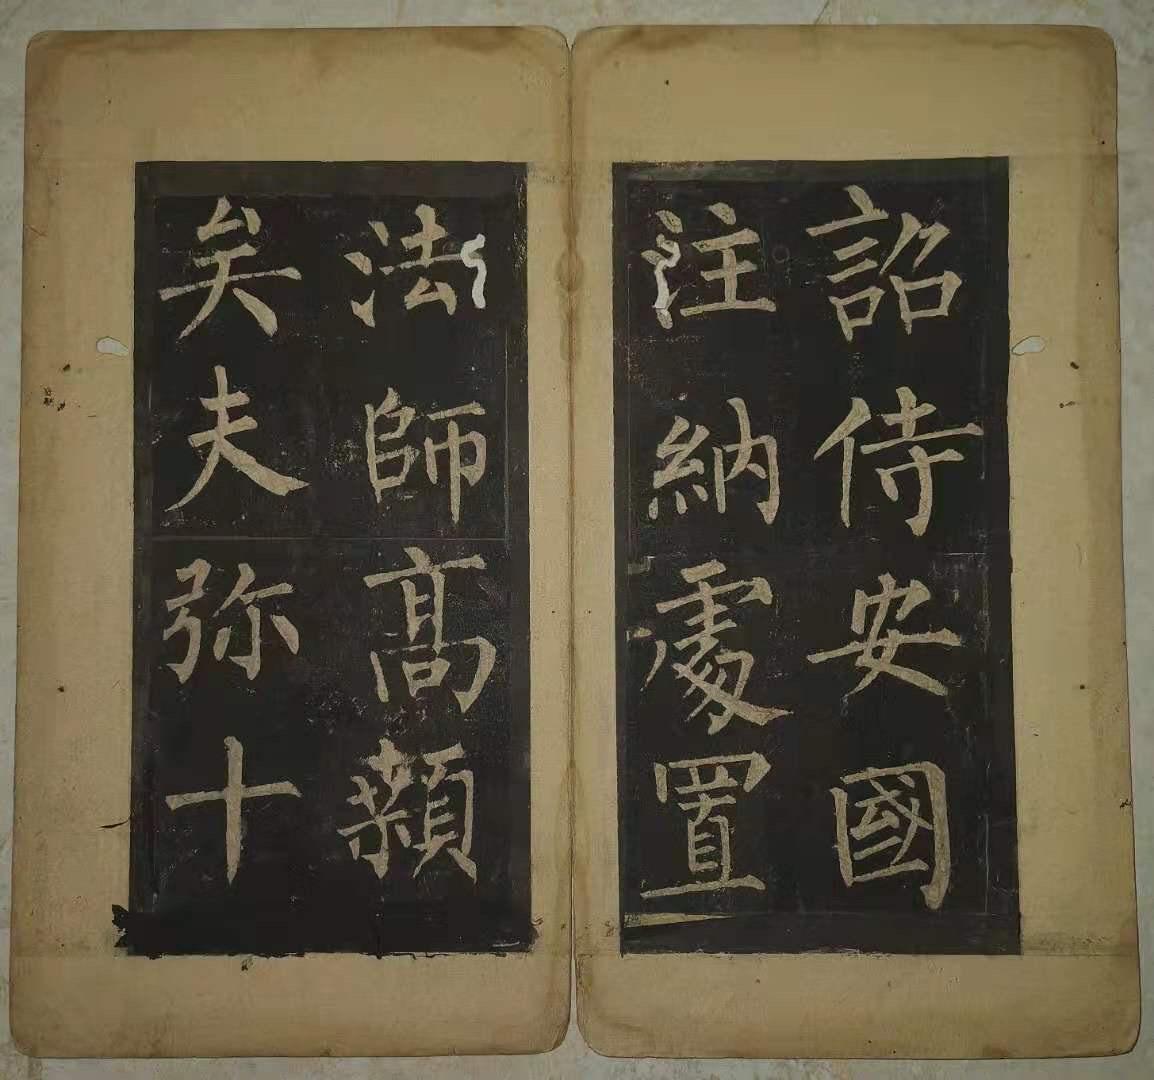 詔侍安國
注納處置
法師髙顙
矣夫弥十